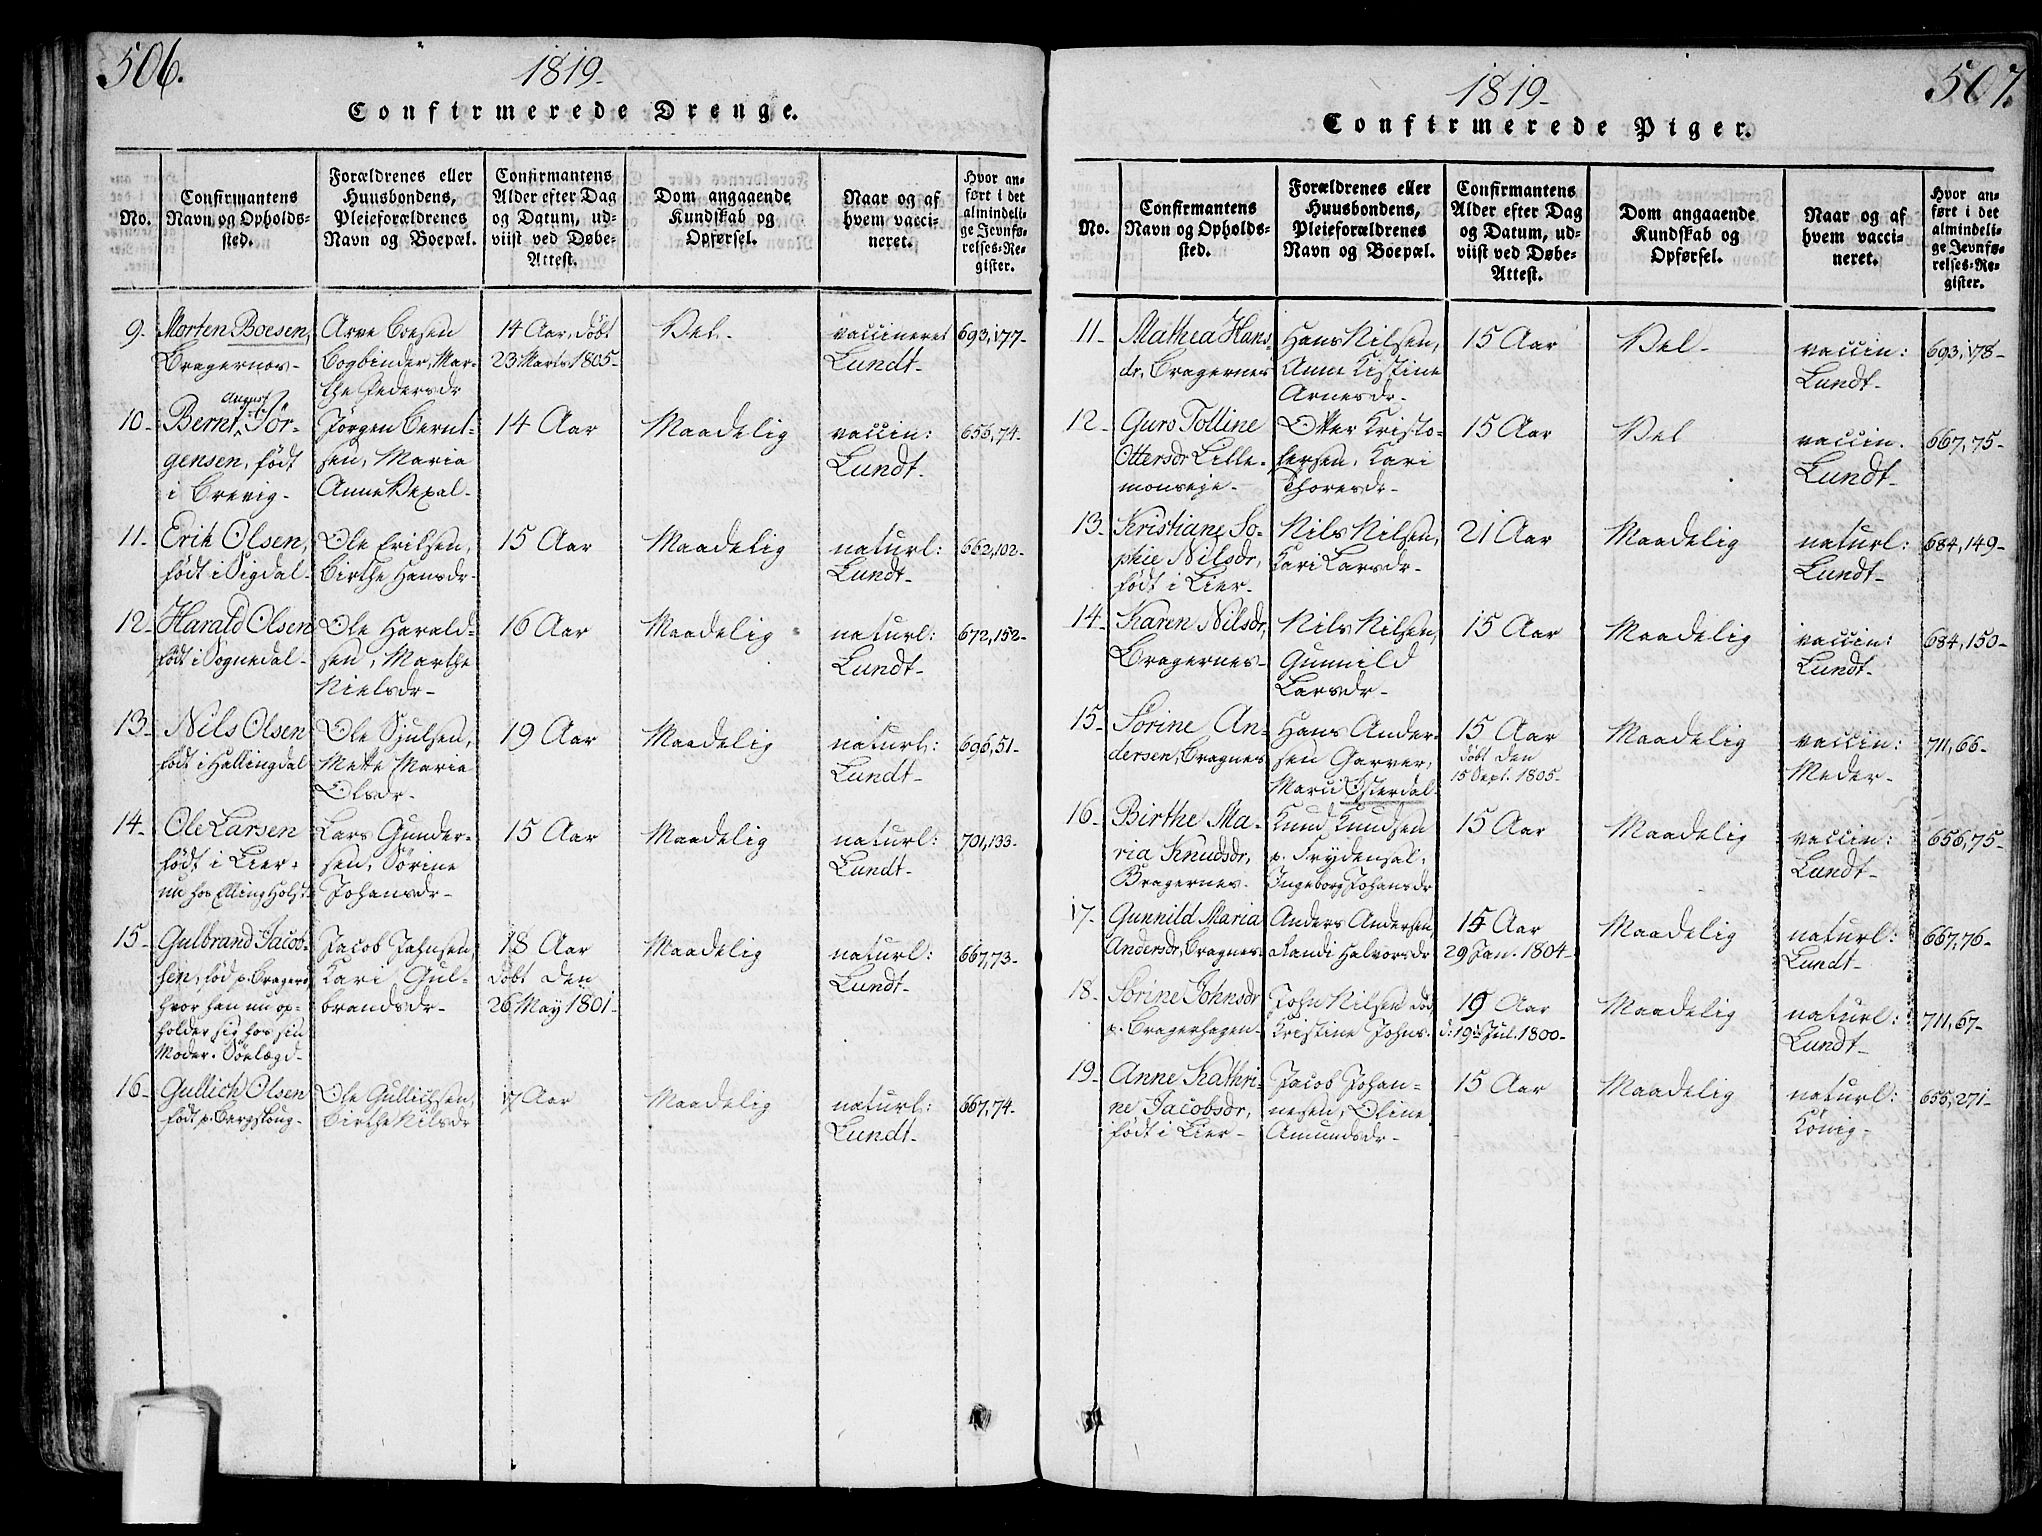 506.
1819.
Confirmerede Drenge.
No.
Confirmantens
Navn og Opholds-
sted.
Forældrenes eller
Huusbondens,
Pleieforældrenes
Navn og Boepæl.
Confirmantens
Alder efter Dag
og Datum, ud-
viist ved Døbe-
Attest.
Dom angaaende
Kundskab og
Opførsel.
Naar og af
hvem vacci-
neret.
Hvor an-
ført i det
almindeli-
ge Jevnfø-
relses-Re-
gister.
9.
Morten Boesen,
Bragernes-
Arve Boesen
Bogbinder, Mar-
the Pedersdr
14 Aar, døbt
23 Marts 1805-
Vel-
vaccineret
Lundt-
693,177-
10-
August
Bernt Jör-
gensen, født
i Brevig-
Jørgen Bernt-
sen, Maria
Anne
14 Aar
Maadelig
vaccin:
Lundt-
656,74-
11-
Erik Olsen,
født i Sigdal-
Ole Eriksen,
Birthe Hansdr-
15 Aar
Maadelig
naturl:
Lundt-
662,102-
12-
Harald Olsen
født i Sognedal-
Ole Harald-
sen, Marthe
Nielsdr-
16 Aar
Maadelig
naturl:
Lundt-
672,152-
13-
Nils Olsen
født i Hallingdal
Ole Sjulsen,
Mette Maria
Olsdr-
19 Aar
Maadelig
naturl:
Lundt-
696,51-
14-
Ole Larsen
født i Lier-
nu hos Elling Holst
Lars Gunder-
sen, Sörine
Johansdr-
15 Aar
Maadelig
naturl:
Lundt-
701,133-
15-
Gulbrand Jacob-
sen, fød p. Bragers
hvor han nu op-
holder sig hos sin
Moder.
Jacob Johnsen,
Kari Gul-
brandsdr-
18 Aar
døbt den
26 May 1801-
Maadelig
naturl:
Lundt-
667,73-
16-
Gullich Olsen
født p. Bergskoug-
Ole Gullichsen,
Birthe Nilsdr
17 Aar
Maadelig
naturl:
Lundt-
667,74-
507.
1819-
Confirmerede Piger.
No.
Confirmantens
Navn og Opholds-
sted.
Forældrenes eller
Huusbondens,
Pleieforældrenes
Navn og Boepæl.
Confirmantens
Alder efter Dag
og Datum, ud-
viist ved Døbe-
Attest.
Dom angaaende
Kundskab og
Opførsel.
Naar og af
hvem vacci-
neret.
Hvor an-
ført i det
almindeli-
ge Jevnfø-
relses-Re-
gister.
11-
Mathea Hans-
dr, Bragernes
Hans Nilsen,
Anne Kistine
Arnesdr-
15 Aar
Vel-
vaccin:
Lundt-
693,178-
12-
Guro Tolline
Ottersdr Lille-
monseje-
Otter Kristo-
fersen, Kari
Thoresdr-
15 Aar
Vel
vaccin.
Lundt-
667,75-
13-
Kristiane So-
phie Nilsdr,
født i Lier-
Nils Nilsen,
Kari Larsdr-
21 Aar
Maadelig
naturl:
Lundt-
684,149-
14-
Karen Nilsdr,
Bragernes-
Nils Nilsen,
Gunnild
Larsdr-
15 Aar
Maadelig
vaccin:
Lundt-
684,150-
15-
Sörine An-
dersen, Bragnes
Hans Ander-
sen Garver,
Mari Osterdal-
15 Aar
døbt den
15 Sept. 1805-
Maadelig
vaccin:
Meder-
711,66-
16-
Birthe Ma-
ria Knudsdr,
Bragernes-
Knud Knudsen
p. Frydensal,
Ingeborg Johansdr
15 Aar
Maadelig
vaccin:
Lundt-
656,75-
17-
Gunnild Maria
Andersdr, Bragnes
Anders Andersen,
Randi Halvorsdr
15 Aar
29 Jan. 1804-
Maadelig
naturl:
Lundt-
667,76-
18-
Sörine Johnsdr
p. Bragerhagen-
John Nilsen død,
Kristine Johns.
19 Aar
d: 19de Jul. 1800-
Maadelig
naturl:
Lundt-
711,67-
19-
Anne Kathri-
ne Jacobsdr,
født i Lier-
Jacob Johan-
nesen, Oline
Amundsdr-
15 Aar
Maadelig
naturl:
König-
655,271-